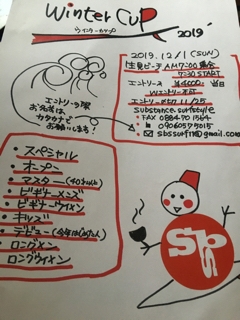 Winter Cup
ウインターカップ
2019
2019.12/1 (SUN)
生見ビーチ AM7:00 集合
7:30 START
エントリー ¥4000 当日
Wエントリー不可
エントリー〆切 11/25
Substance.surfstyle
・FAX 0884701564
・09060575015
エントリーの際
お名前は、
カタカナで
お願いします!
・スペシャル
・オープン
・マスター (40才以上)
・ビギナーメンズ
・ビギナーウイメン
・キッズ
・デビュー
・ロングメン
ロングウイメン
SPS